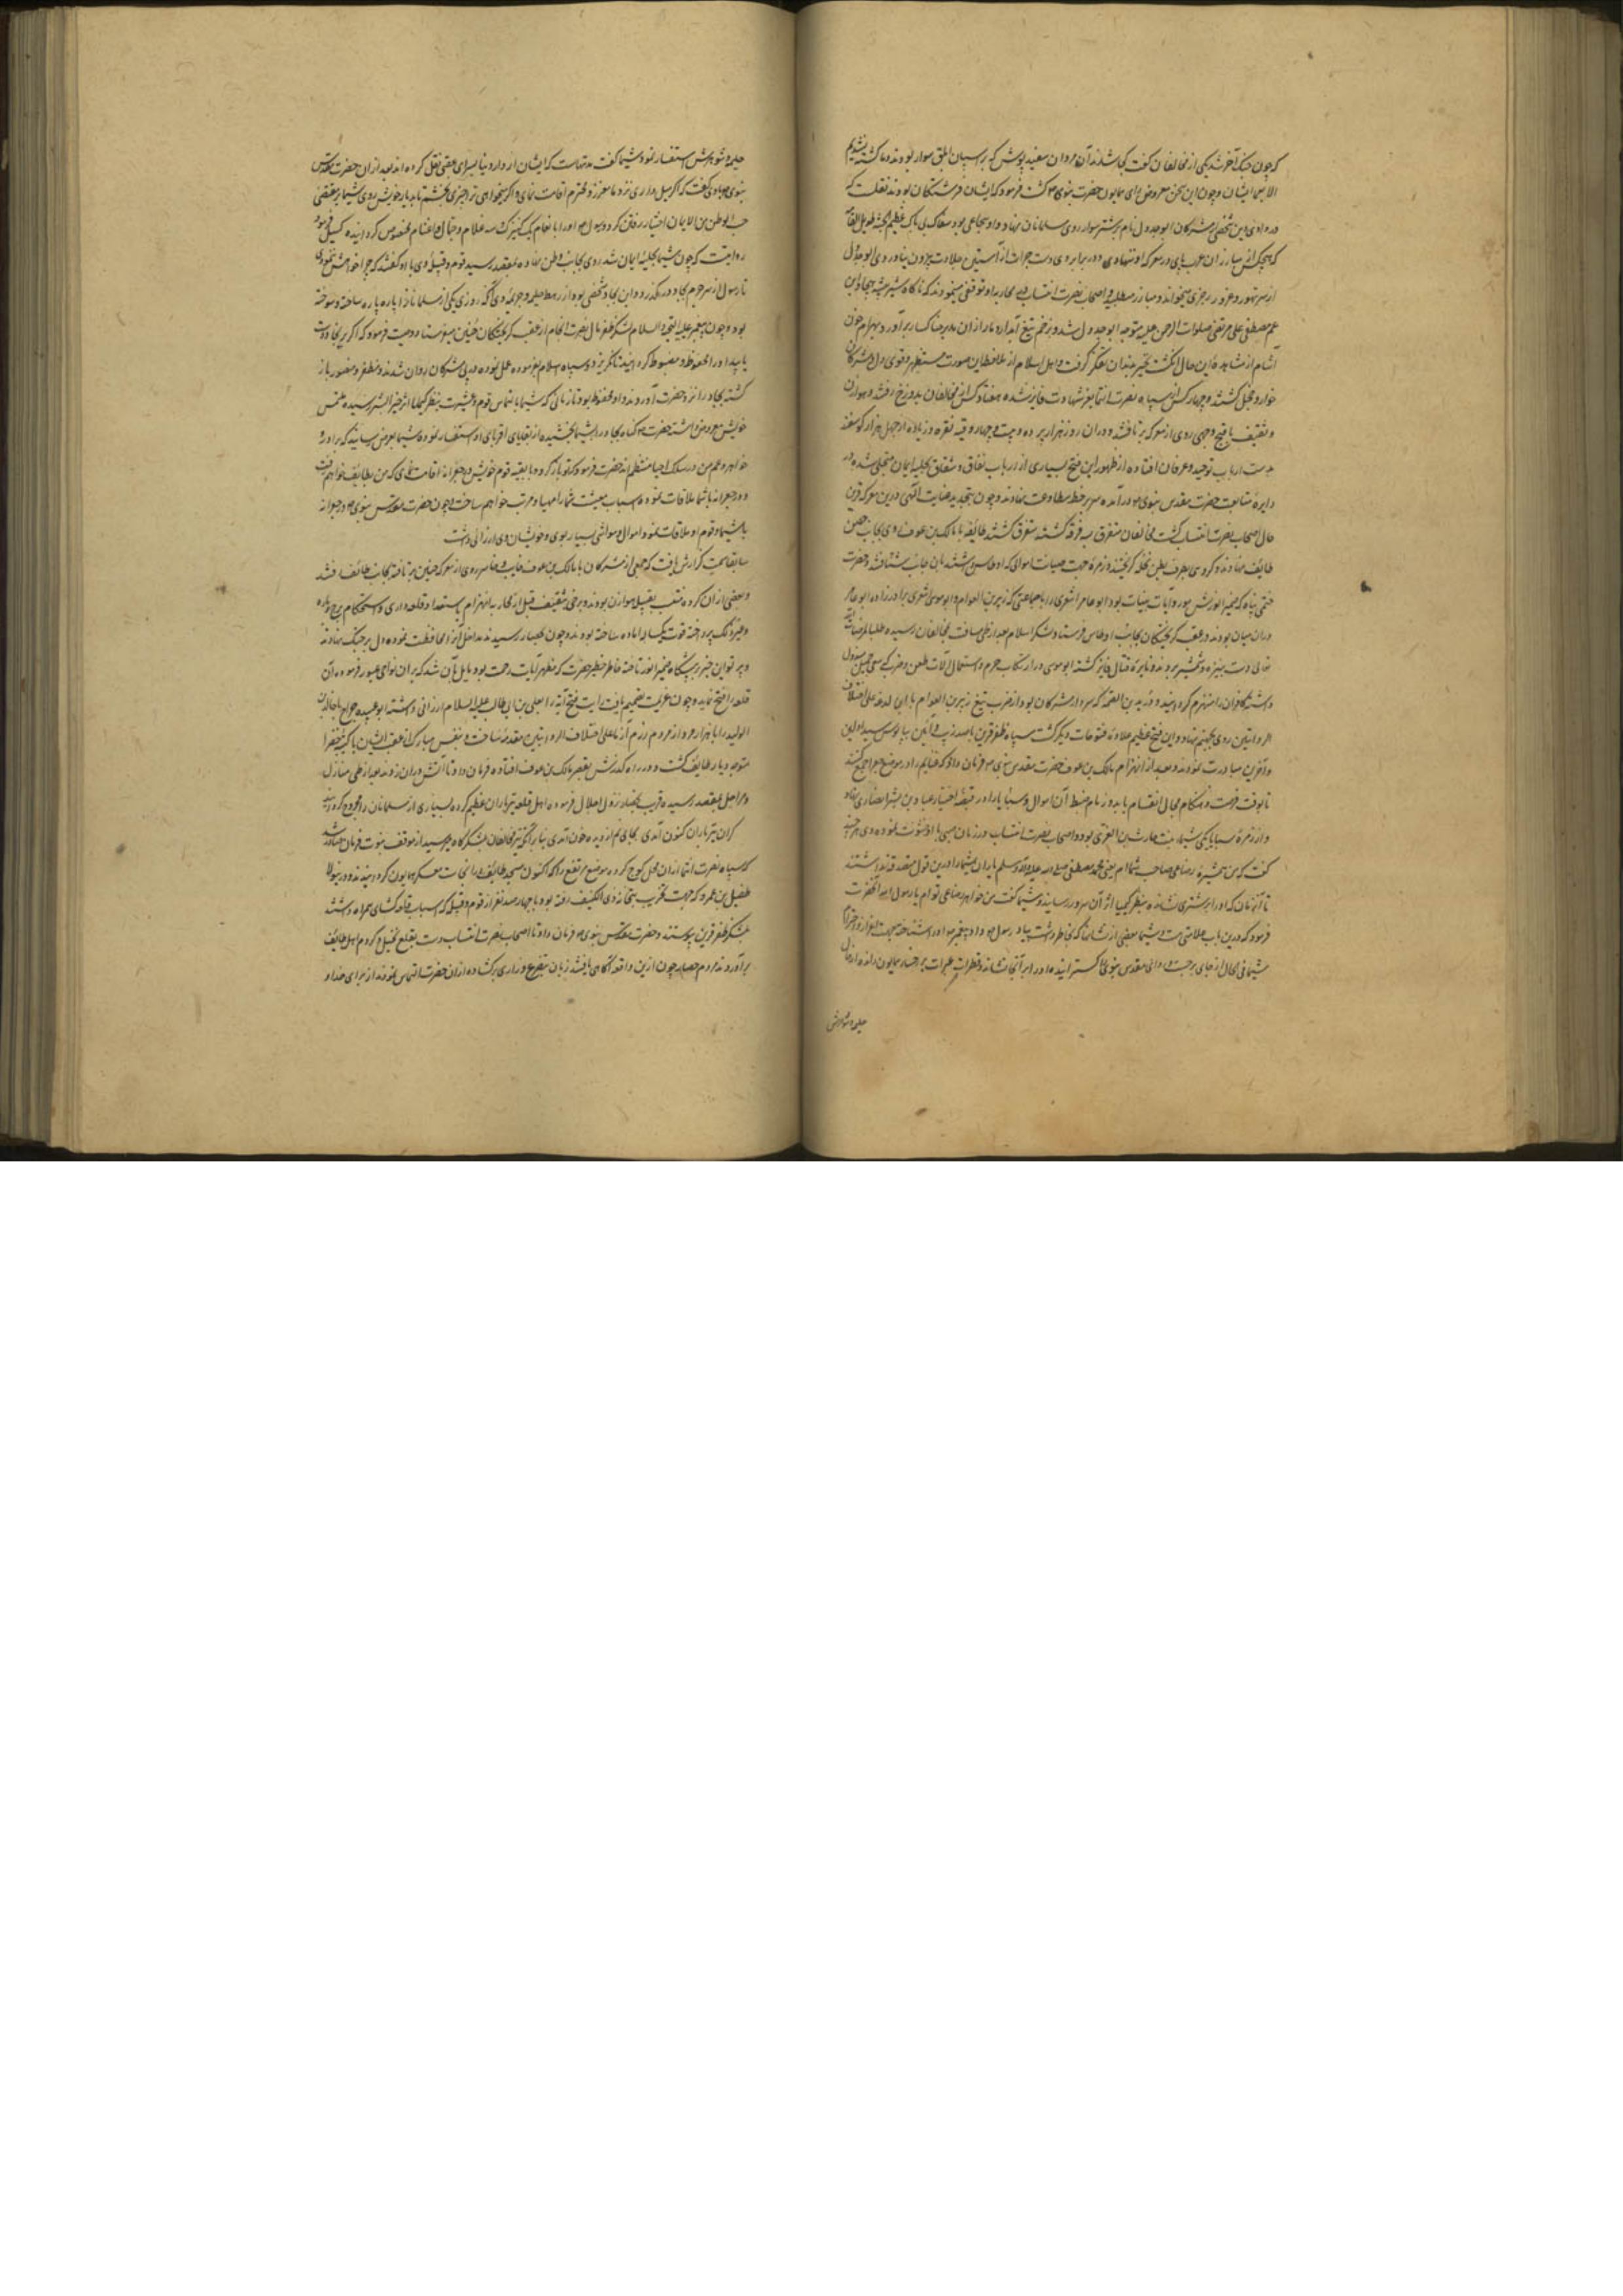 که چون جنگ آخر شد یکی از مخالفان گفت کجا شدند آن مردان سفید پوش که بر اسپان ابلق سوار بودند و ما کشته نشدیم
الا ایشان و چون این سخن معروض رای همایون حضرت نبوی گشت فرمود که ایشان فرشتگان بودند نقلست که
در وادی این شخصی از مشرکان ابو جدول نام بر شتر سوار روی بمسلمانان نهاد و او شجاعی بود سفاک بی باک عظیم الجثه طویل القامة
که هیچکس از مبارزان عرب پای در معرکه او ننهادی و در برابر وی دست جرات از آستین جلادت بیرون نیاوردی ابو جدول
از سر تهور و غرور رجزی میخواند و مبارز میطلبید و اصحاب نصرت انتساب در محاربه او توقفی مینمودند که ناگاه شیر بیشه هیجا ابن
عم مصطفی علی مرتضی صلوات الرحمن علیه متوجه ابو جدول شد و بزخم تیغ آبدار دمار از آن مدبر خاکسار برآورد و بهرام خون
آشام از مشاهده این حال انگشت تحیر بدندان تفکر گرفت و اهل اسلام از ملاحظه این صورت مستظهر و قوی دل و مشرکان
خوار و خجل گشتند و چهار کس از سپاه نصرت انتما بعز شهادت فایز شده هفتاد کس از مخالفان بدوزخ رفتند و هوازن
و ثقیف باقبح وجهی روی از معرکه برتافتند و در آن روز هزار برده و بیست و چهار وقیه نقره و زیاده از چهل هزار گوسفند
بدست ارباب توحید و عرفان افتاده از ظهور این فتح بسیاری از ارباب نفاق و شقاق بحلیه ایمان متحلی شده در
دایره متابعت حضرت مقدس نبوی درآمده سر بر خط مطاوعت نهادند و چون بتجدید عنایت الهی درین معرکه قرین
حال اصحاب نصرت انتساب گشت مخالفان متفرق سه فرقه گشتند طایفه با مالک بن عوف روی بجانب حصن
طایف نهادند و گروهی بطرف بطن نخله گریختند و زمره جهت صیانت اموالی که در اوطاس داشتند بآن جانب شتافتند و حضرت
ختمی پناه که ضمیر انورش مورد آیات بینات بود ابو عامر اشعری را با جماعتی که زبیر بن العوام و ابو موسی اشعری برادرزاده ابو عامر
در آن میان بودند در عقب گریختگان بجانب اوطاس فرستاد و لشکر اسلام بعد از طی مسافت بمخالفان رسیده طلبا لمرضات الله
تعالی دست بنیزه و شمشیر بردند و نایره قتال
داشته کافران را منهزم گردانیدند و درید بن الصمه که سردار مشرکان بود از ضرب تیغ زبیر بن العوام یا ابن لدغه علی اختلاف
الروایتین روی بجهنم نهاد و این فتح عظیم علاوه فتوحات دیگر گشت سپاه ظفر قرین با صد زیب و آئین بپابوس سید اولین
و آخرین مبادرت نمودند و بعد از انهزام مالک بن عوف حضرت مقدس نبوی فرمان داد که غنایم را در موضع جمع کنند
تا بوقت فرصت و هنگام مجال انقسام یابد و زمام ضبط آن اموال و سبایا را در قبضه اختیار عباد بن بشر انصاری نهاد
و از زمره سبایا یکی شیما بنت حارث بن العزی بود و اصحاب نصرت انتساب در زمان سبی با او خشونت نموده وی هر چند
گفت که من همشیره رضاعی صاحب شما ام یعنی محمد مصطفی صلی الله علیه و آله وسلم یاران شیما را درین قول مصدق نداشتند
تا آن زمان که او را بر شتری نشانده بنظر کیمیا اثر آن سرور رسانیدند و شیما گفت من خواهر رضاعی توام یا رسول الله آنحضرت
فرمود که درین باب علامتی هست و شیما بعضی از نشانها که بخاطر داشت بیاد رسول داد و پیغمبر او را شناخته جهت اعزاز و احترام
شیما فی الحال از جای برجست و ردای مقدس نبوی گسترانیده او را بر آنجا نشاند و قطرات عبرات بر رخسار همایون رانده از حال
حلیمه و شوهرش
حلیمه و شوهرش استفسار نمود شیما گفت مدتهاست که ایشان از دار دنیا بسرای عقبی نقل کرده اند بعد از آن حضرت مقدس
نبوی با وی گفت که اگر میل داری نزد ما معزز و محترم اقامت نمای و اگر میخواهی ترا چیزی بخشم تا بدیار خویش روی شیما بمقتضی
حب الوطن من الایمان اختیار رفتن کرد و رسول او را بانعام یک کنیزک و سه غلام و جمال و اغنام مخصوص گردانیده گسیل فرمود
روایتست که چون شیما بحلیه ایمان شد روی بجانب وطن نهاده بمقصد رسید قوم و قبیله وی با او گفتند که چرا خواهش ننمودی
تا رسول از سر جرم بجاد درگذرد و این بجاد شخصی بود از رهط حلیمه و جریمه وی آنکه روزی یکی از مسلمانان را پاره پاره ساخته و سوخته
بود و چون پیغمبر علیه التحیه و السلام لشکر ظفر مآل نصرت انجام از عقب گریختگان حنین میفرستاد وصیت فرمود که اگر بر بجاد دست
یابید او را محفوظ و مضبوط گردانید تا نگریزد و سپاه اسلام بفرموده عمل نموده در پی مشرکان روان شدند و مظفر و منصور باز
گشته بجاد را نزد حضرت آوردند و او محفوظ بود تا زمانی که شیما بالتماس قوم و عشیرت بنظر کیمیا اثر خیر البشر رسیده ملتمس
خویش معروض داشته حضرت گناه بجاد را بشیما بخشیده از بقایای اقربای او استفسار نمود و شیما بعرض رسانید که برادر و
خواهر و عم من در سلک احیا منتظم اند حضرت فرمود که تو بازگرد و با بقیه قوم خویش در جعرانه اقامت نمای که من بطایف خواهم رفت
و در جعرانه با شما ملاقات نموده اسباب معیشت شما را مهیا و مرتب خواهم ساخت و چون حضرت مقدس نبوی در جعرانه
با شیما و قوم او ملاقات نمود اموال و مواشی بسیار بوی و خویشان وی ارزانی داشت
سابقا سمت گزارش یافت که جمعی از مشرکان با مالک بن عوف خایب و خاسر روی از معرکه حنین برتافته بجانب طائف رفتند
و بعضی از آن گروه منتسب بقبیله هوازن بودند و برخی بثقیف قبل از محاربه انهزام باستعداد قلعه داری و استحکام برج و باره
و غیر ذلک پرداخته قوت یکساله آماده ساخته بودند و چون بحصار رسیدند مداخل آنرا محافظت نموده دل بر جنگ نهادند
و پرتو این خبر بر پیشگاه ضمیر انور تافته خاطر خطیر حضرت که مظهر آیات رحمت بود مایل بآن شد که بر آن نواحی عبور فرموده آن
قلعه را فتح نماید و چون عزیمت تصمیم یافت رایت فتح آیه را بعلی بن ابی طالب علیه السلام ارزانی داشته ابو عبیده جراح یا خالد بن
الولید را با هزار مرد از مردم رزم آزما علی اختلاف الروایتین مقدمه ساخت و بنفس مبارک از عقب ایشان با کتیبه خضرا
متوجه دیار طایف گشت و در راه گذرش بقصر مالک بن عوف افتاده فرمان داد تا آتش در آن زدند و بعد از طی منازل
و مراحل بمقصد رسیده قریب بحصار نزول اجلال فرمود و اهل قلعه تیرباران عظیم کرده بسیاری از مسلمانان را مجروح گردانیدند
کران تیرباران کنون آمدی بجای نم از دیده خون آمدی بنا بر آنکه تیر مخالفان بلشکرگاه میرسید از موقف نبوت فرمان صادر شد
که سپاه نصرت انتما از آن محل کوچ کرده بموضع مرتفع که اکنون مسجد طائفست آنجا معسکر همایون گردانیدند و در ینولا
طفیل بن عمرو که جهت تخریب بتخانه ذی الکفین رفته بود با چهار صد نفر از قوم و قبیله که اسباب قلعه گشای همراه داشتند
بلشکر ظفر قرین پیوستند و حضرت مقدس نبوی فرمان داد تا اصحاب نصرت انتساب دست بقلع نخیل و کروم اهل طایف
برآوردند مردم حصار چون ازین واقعه آگاهی یافتند زبان بتضرع و زاری برگشاده از آن حضرت التماس نمودند از برای خدا و